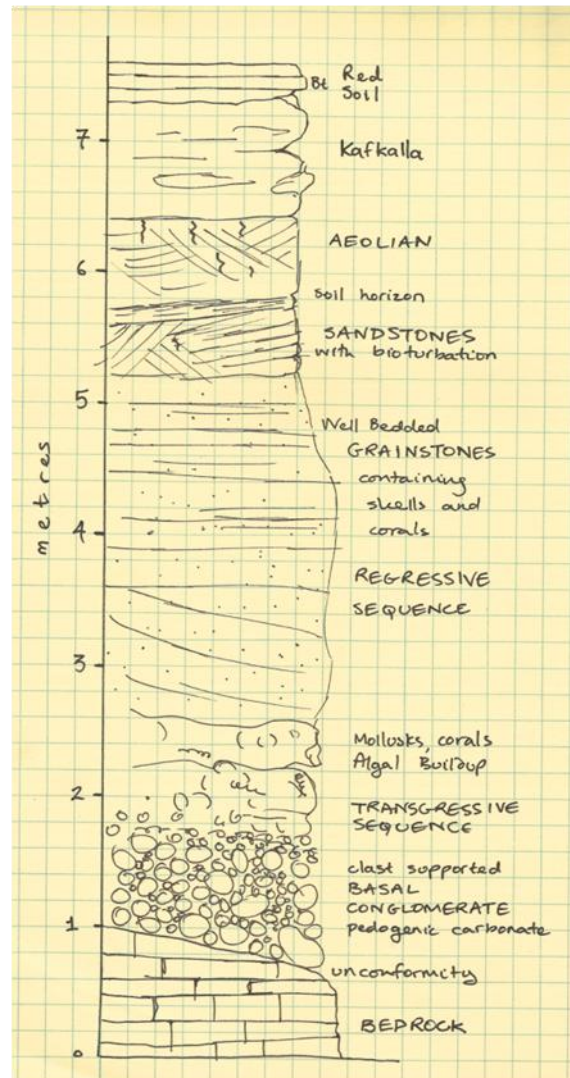 Bt Red
Soil
7
Kafkalla
AEOLIAN
6
soil horizon
SANDSTONES
with bioturbation
5
Well Bedded
GRAINSTONES
containing
shells and
corals
metres
4
REGRESSIVE
SEQUENCE
3
Mollusks, corals
Algal Buildup
2
TRANSGRESSIVE
SEQUENCE
clast supported
BASAL
CONGLOMERATE
1
pedogenic carbonate
unconformity
BEDROCK
0